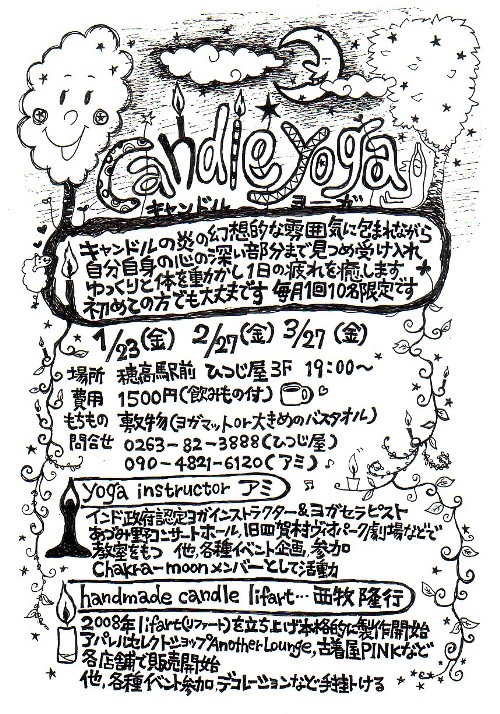 Candle yoga
キャンドル ヨーガ
キャンドルの炎の幻想的な雰囲気に包まれながら
自分自身の心の深い部分まで見つめ受け入れ
ゆっくりと体を動かし1日の疲れを癒します
初めての方でも大丈夫です 毎月1回10名限定です
1/23(金) 2/27(金) 3/27(金)
場所 穂高駅前 ひつじ屋3F 19:00〜
費用 1500円(飲みもの付)
もちもの 敷物(ヨガマットor大きめのバスタオル)
問合せ 0263-82-3888(ひつじ屋)
090-4821-6120(アミ)
yoga instructor アミ
インド政府認定ヨガインストラクター&ヨガセラピスト
あづみ野コンサートホール,旧四賀村ヴィオパーク劇場などで
教室をもつ 他,各種イベント企画,参加
Chakra-moonメンバーとして活動
handmade candle lifart…西牧 隆行
2008年lifart(リファート)を立ち上げ本格的に製作開始
アパレルセレクトショップAnother Lounge,古着屋PINKなど
各店舗で販売開始
他,各種イベント参加,デコレーションなど手掛ける